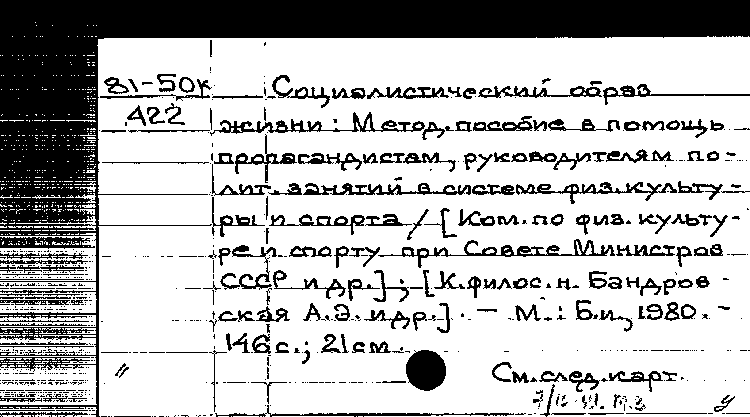 81-50к Социалистический образ
422 жизни: Метод. пособие в помощь
пропагандистам, руководителям по-
лит. занятий в системе физ. культу-
ры и спорта / [Ком. по физ. культу-
ре и спорту при Совете Министров
СССР и др.]; [К. филос. н. Бандров-
ская А.Э. и др.]. - М.: Б.и., 1980. -
146 с.; 21 см.
См. след. карт.